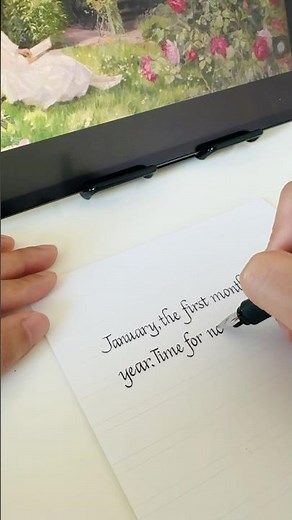 January, the first month
year. Time for no